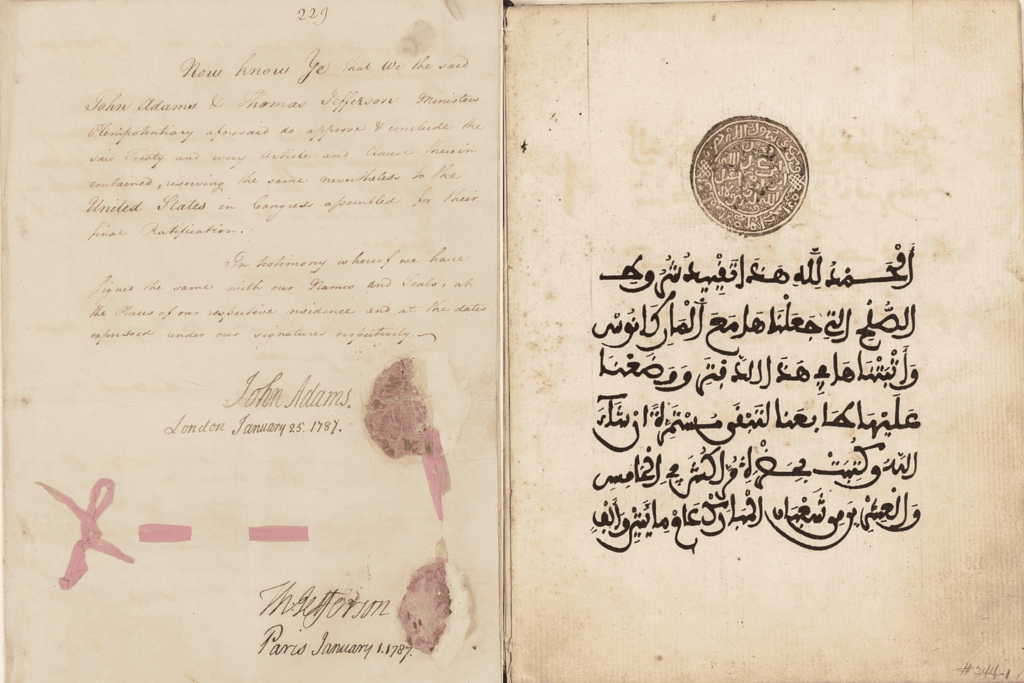 229
Now know Ye that We the said
John Adams & Thomas Jefferson Ministers
Plenipotentiary aforesaid do approve & conclude the
said Treaty and every Article and Clause therein
contained, reserving the same nevertheless to the
United States in Congress assembled for their
final Ratification.
In testimony whereof we have
signed the same with our Names and Seals, at
the Places of our respective residence and at the dates
expressed under our signatures respectively.
John Adams.
London January 25. 1787.
Th Jefferson
Paris January 1. 1787.
الحمد لله هذا تقييد شروط
الصلح التي جعلناها مع الماركانوس
وأثبتناها في هذا الدفتر ووضعنا
عليها طابعنا لتبقى مستمرة ان شاء
الله وكتبت بحضرة مراكش في الخامس
والعشرين من شعبان المبارك عام مايتين وألف
#244-1